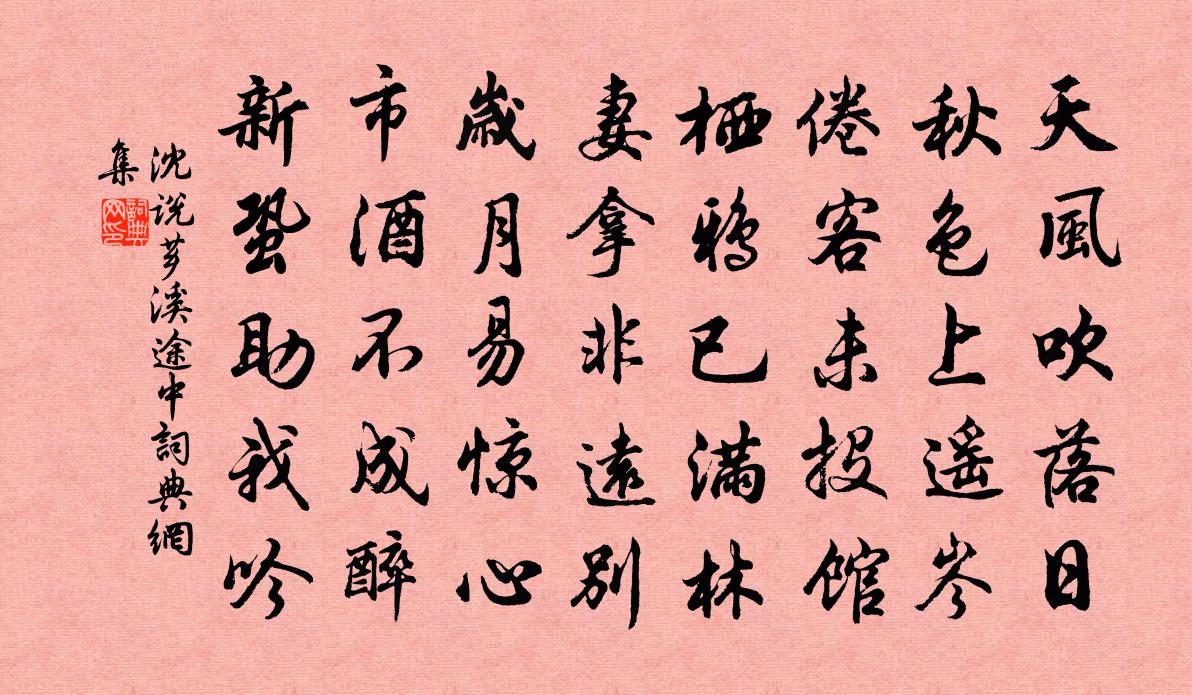 天風吹落日
秋色上遥岑
倦客未投館
栖鴉已滿林
妻拿非遠别
嵗月易惊心
市酒不成醉
新蛩助我吟
沈説芗溪途中詞典網
集
詞典网印